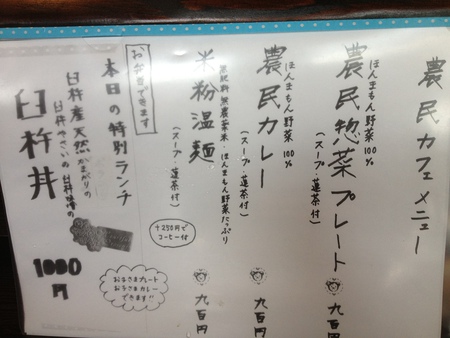 農民カフェメニュー
ほんまもん野菜100%
農民惣菜プレート
(スープ・蓮茶付)
九百円
ほんまもん野菜100%
農民カレー
(スープ・蓮茶付)
九百円
米粉温麺
農肥料無農薬米・ほんまもん野菜たっぷり
(スープ・蓮茶付)
九百円
+250円で
コーヒー付
お弁当できます
本日の特別ランチ
臼杵産天然かまがりの
臼杵やさいの臼杵焼の
臼杵丼
1000
円
お子さまプレート
お子さまカレー
できます!!